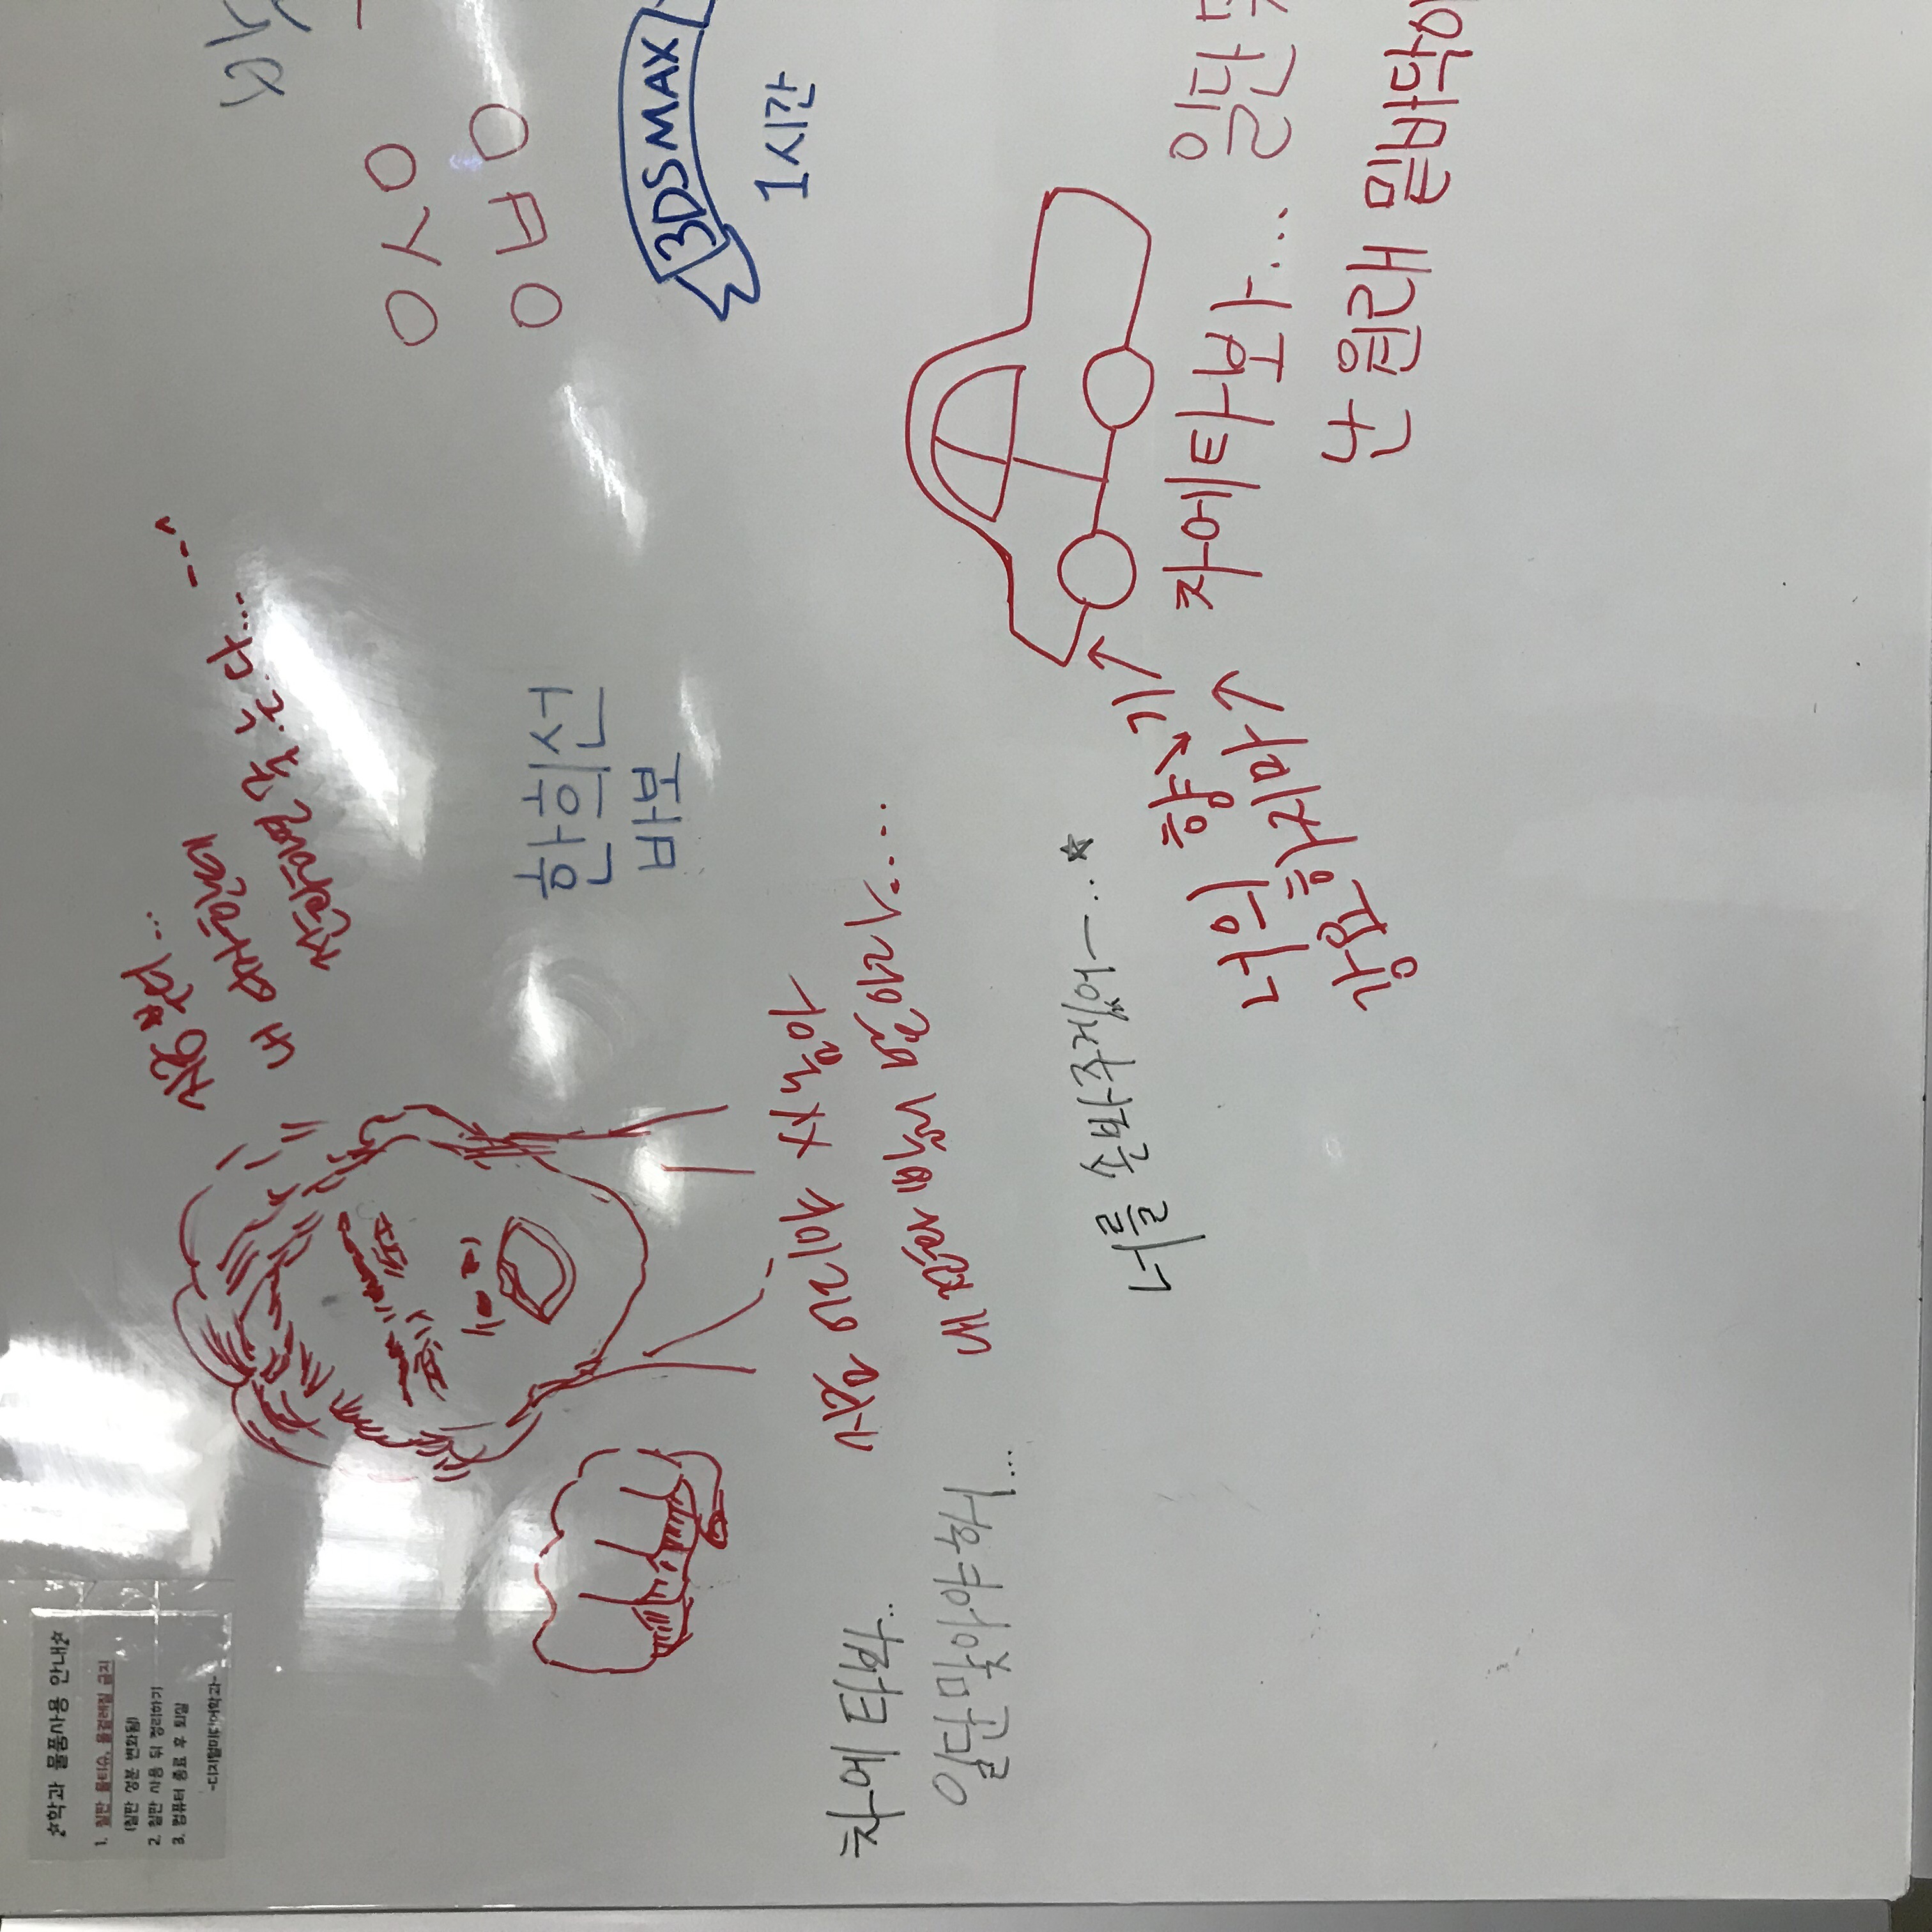 ☆학과 물품사용 안내☆
1. 칠판 물티슈, 물걸레질 금지
(칠판 성분 변화됨)
2. 칠판 사용 뒤 정리하기
3. 컴퓨터 종료 후 퇴실
-디지털미디어학과-
지금부터...
내 여자한테
전화하면 죽.는.다...
ㅇㅅㅇ
ㅇㅂㅇ
한희선
바보
3DS MAX
1시간
지금 어디야 XX놈아
내 전화 빨리 받아라....
차에 타봐..
일단 맞아야 해...
너를 손봐주겠어ㅡ..☆
너의 향↘기↗
강요하지마↗
차에타봐...
일단
난 원래 밑바닥이